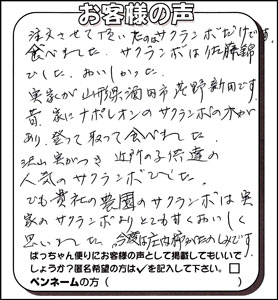 お客様の声
注文させて頂いたのはサクランボだけです。
食べれた。サクランボは佐藤錦
でした。おいしかった。
実家が山形県酒田市 新田です。
昔、家にナポレオンのサクランボの木が
あり、登って取って食べれた。
沢山実がつき 近所の子供達の
人気のサクランボでした。
でも貴社の農園のサクランボは実
家のサクランボよりとても甘くおいしく
思いれた。今度は庄内柿 たのしみです。
ばっちゃん便りにお客様の声として掲載してもいいで
しょうか?匿名希望の方は✓を記入して下さい。□
ペンネームの方( )